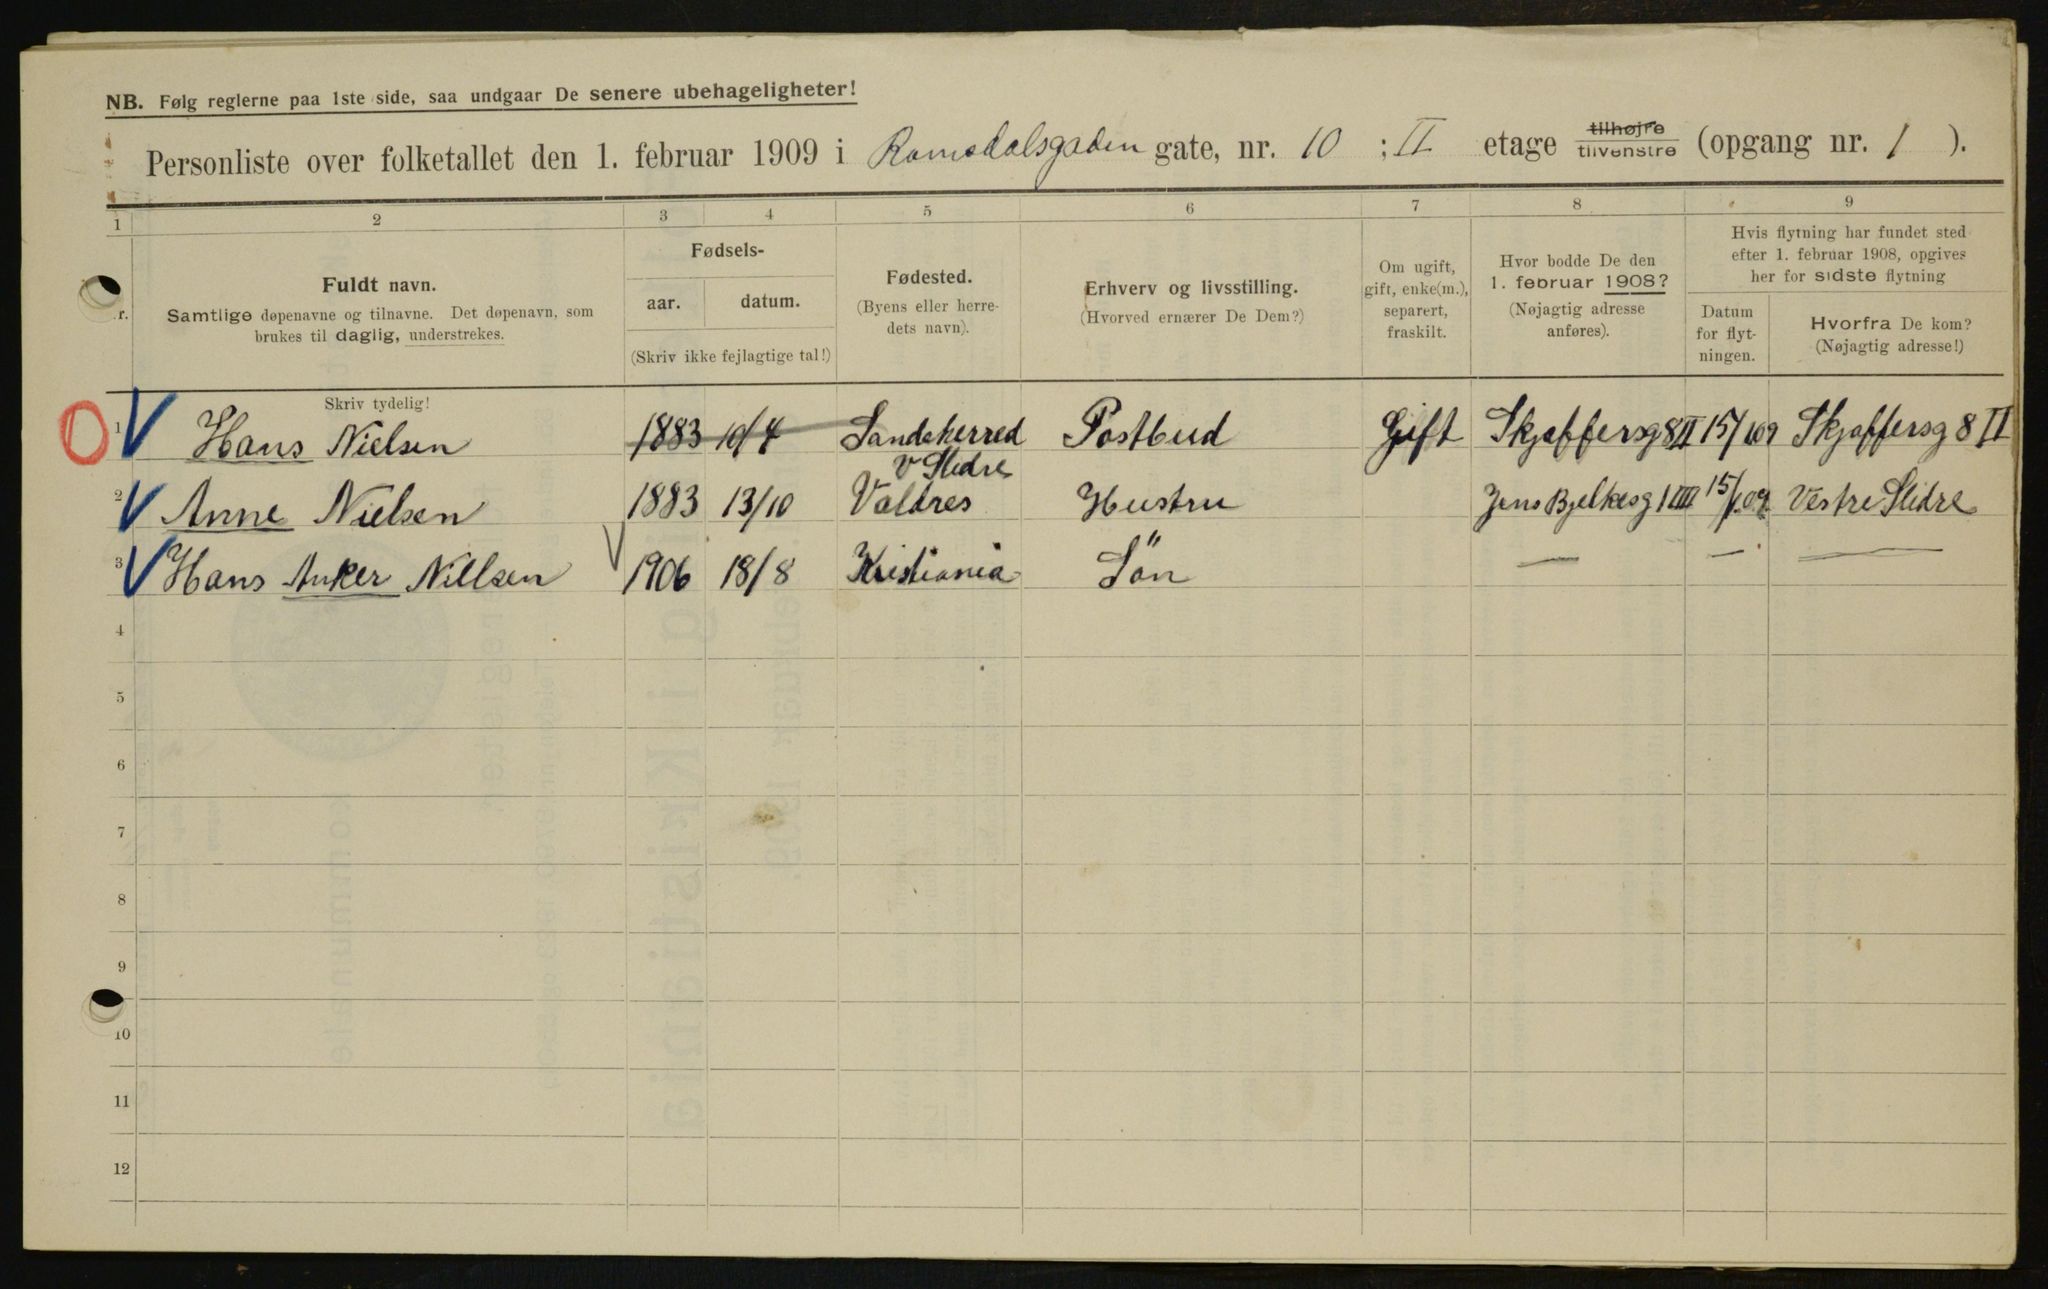 NB. Følg reglerne paa 1ste side, saa undgaar De senere ubehageligheter!
Personliste over folketallet den 1. februar 1909 i Romsdalsgaden gate, nr. 10 ; II etage tilhøjre tilvenstre (opgang nr. 1 ).
1 2 3 4 5 6 7 8 9
r.
Fuldt navn.
Samtlige døpenavne og tilnavne. Det døpenavn, som
brukes til daglig, understrekes.
Skriv tydelig!
Fødsels-
aar. datum.
(Skriv ikke fejlagtige tal!)
Fødested.
(Byens eller herre-
dets navn).
Erhverv og livsstilling.
(Hvorved ernærer De Dem?)
Om ugift,
gift, enke(m.),
separert,
fraskilt.
Hvor bodde De den
1. februar 1908?
(Nøjagtig adresse
anføres).
Hvis flytning har fundet sted
efter 1. februar 1908, opgives
her for sidste flytning
Datum
for flyt-
ningen.
Hvorfra De kom?
(Nøjagtig adresse!)
1 Hans Nielsen 1883 10/4 Sandeherred Postbud Gift Skjøffersg 8 II 15/1 09 Skjøffersg 8 II
V Slidre
2 Anne Nielsen 1883 13/10 Valdres Hustru Jens Bjelkesg 1 III 15/1 09 Vestre Slidre
3 Hans Anker Nielsen 1906 18/8 Kristiania Sön — — —
4
5
6
7
8
9
10
11
12